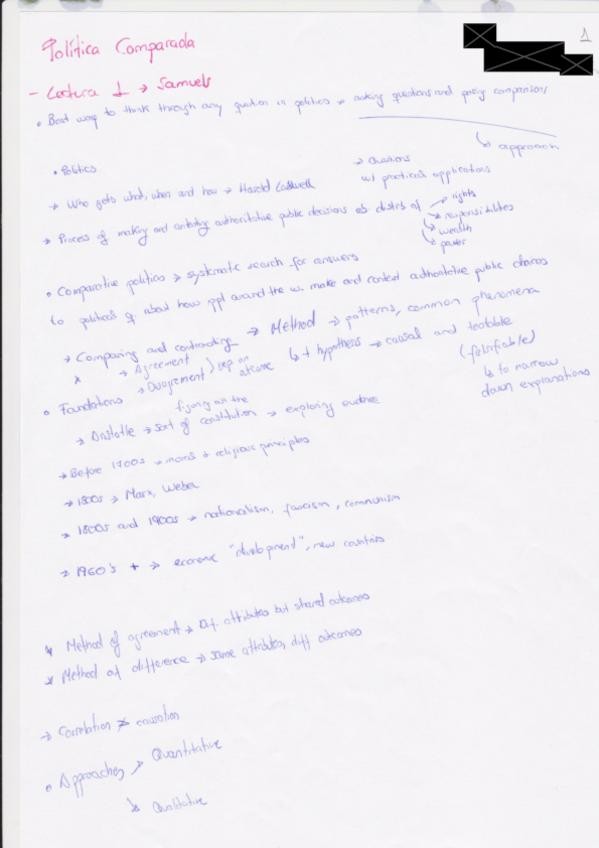 Política Comparada
1
- Lectura 1 → Samuels
• Best way to think through any question in politics → asking questions and making comparisons
↳ approach
• Politics
→ Questions
w/ practical applications
→ Who gets what, when and how → Harold Lasswell
→ Process of making and contesting authoritative public decisions ab distrib of → rights
→ responsibilities
→ wealth
→ power
• Comparative politics → systematic search for answers
to political q about how ppl around the w. make and contest authoritative public choices
→ Comparing and contrasting → Method → patterns, common phenomena
→ Agreement
→ Disagreement ) dep on outcome
↳ + hypothesis → causal and testable
(falsifiable)
↳ to narrow
down explanations
• Foundations
→ Aristotle → figuring out the sort of constitution → exploring evidence
→ Before 1700s → morals + religious principles
→ 1800s → Marx, Weber
→ 1800s and 1900s → nationalism, fascism, communism
→ 1960's + → economic "development", new countries
* Method of agreement → Dif. attributes but shared outcomes
* Method of difference → same attributes, diff outcomes
→ Correlation ≠ causation
• Approaches → Quantitative
↳ Qualitative